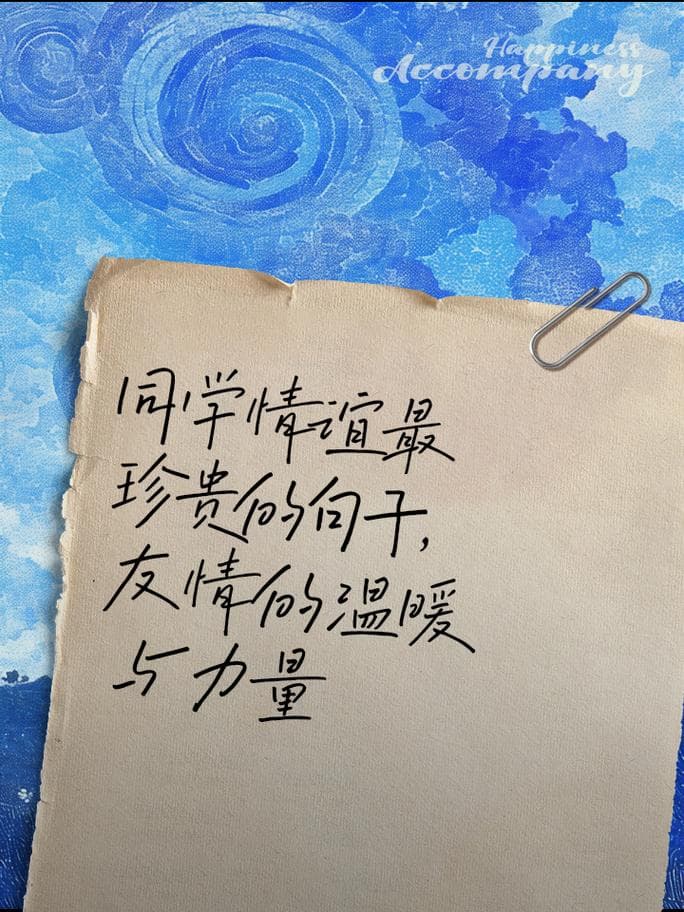 Happiness
Accompany
同学情谊最
珍贵的句子,
友情的温暖
与力量